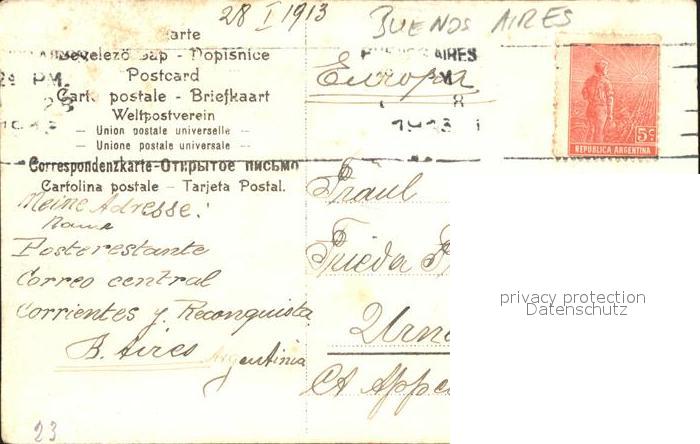 28 I 1913
BUENOS AIRES
Karte
Levelező Lap - Dopisnice
Postcard
Carte postale - Briefkaart
Weltpostverein
- Union postale universelle -
- Unione postale universale -
Correspondenzkarte-Открытое письмо
Cartolina postale - Tarjeta Postal.
29 PM.
28
BUENOS AIRES
M
8
1913
5c
REPUBLICA ARGENTINA
Europa
Meine Adresse:
Name
Posterestante
Correo central
Corrientes y Reconquista
B. Aires Argentinia
23
Fraul
Frieda
Urnä
Ct Appe
privacy protection
Datenschutz